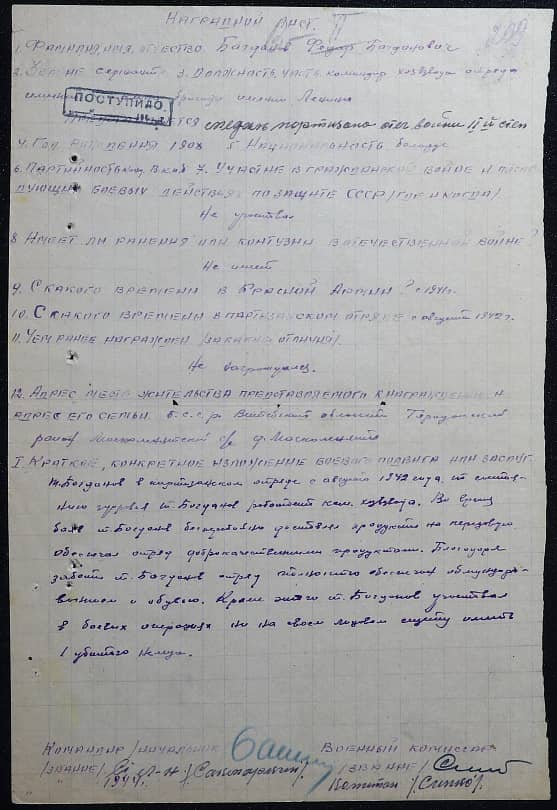 Наградной лист.
II
209
1. Фамилия, имя, отчество Багданов Федар Багданович
2. Звание сержант 3. Должность, часть командир хозвзвода отряда
бригады имени Ленина
ПОСТУПИЛО
Представляется к медаль партизана отеч войны II й степ
4. Год рождения 1908 5. Национальность белорус
6. Партийность канд. вкпб 7. Участие в гражданской войне и после
дующих боевых действиях по защите СССР /где и когда/
Не участвов
8. Имеет ли ранения или контузии в отечественной войне?
Не имеет
9. С какого времени в Красной Армии? с 1941г.
10. С какого времени в партизанском отряде с августа 1942г.
11. Чем ранее награжден /за какие отличия/.
Не награждался.
12. Адрес места жительства представляемого к награждению и
адрес его семьи. б.с.с.р. Витебская область Городокский
район с/с д.
I. Краткое, конкретное изложение боевого подвига или заслуг
т. Богданов в партизанском отряде с августа 1942 года,
т. Богданов работает ком. хозвзвода. Во время
боев т. Богданов бесперебойно доставлял продукты на передовую
Обеспечил отряд доброкачественными продуктами. Благодаря
заботе т. Багданов отряд полностью обеспечен обмундиро-
ванием и обувью. Кроме этого т. Богданов участвовал
в боевых операциях но на своем лицевом счету имеет
1 убитого немца.
Командир /начальник Военный комиссар
/звание/ /звание/
Капитан